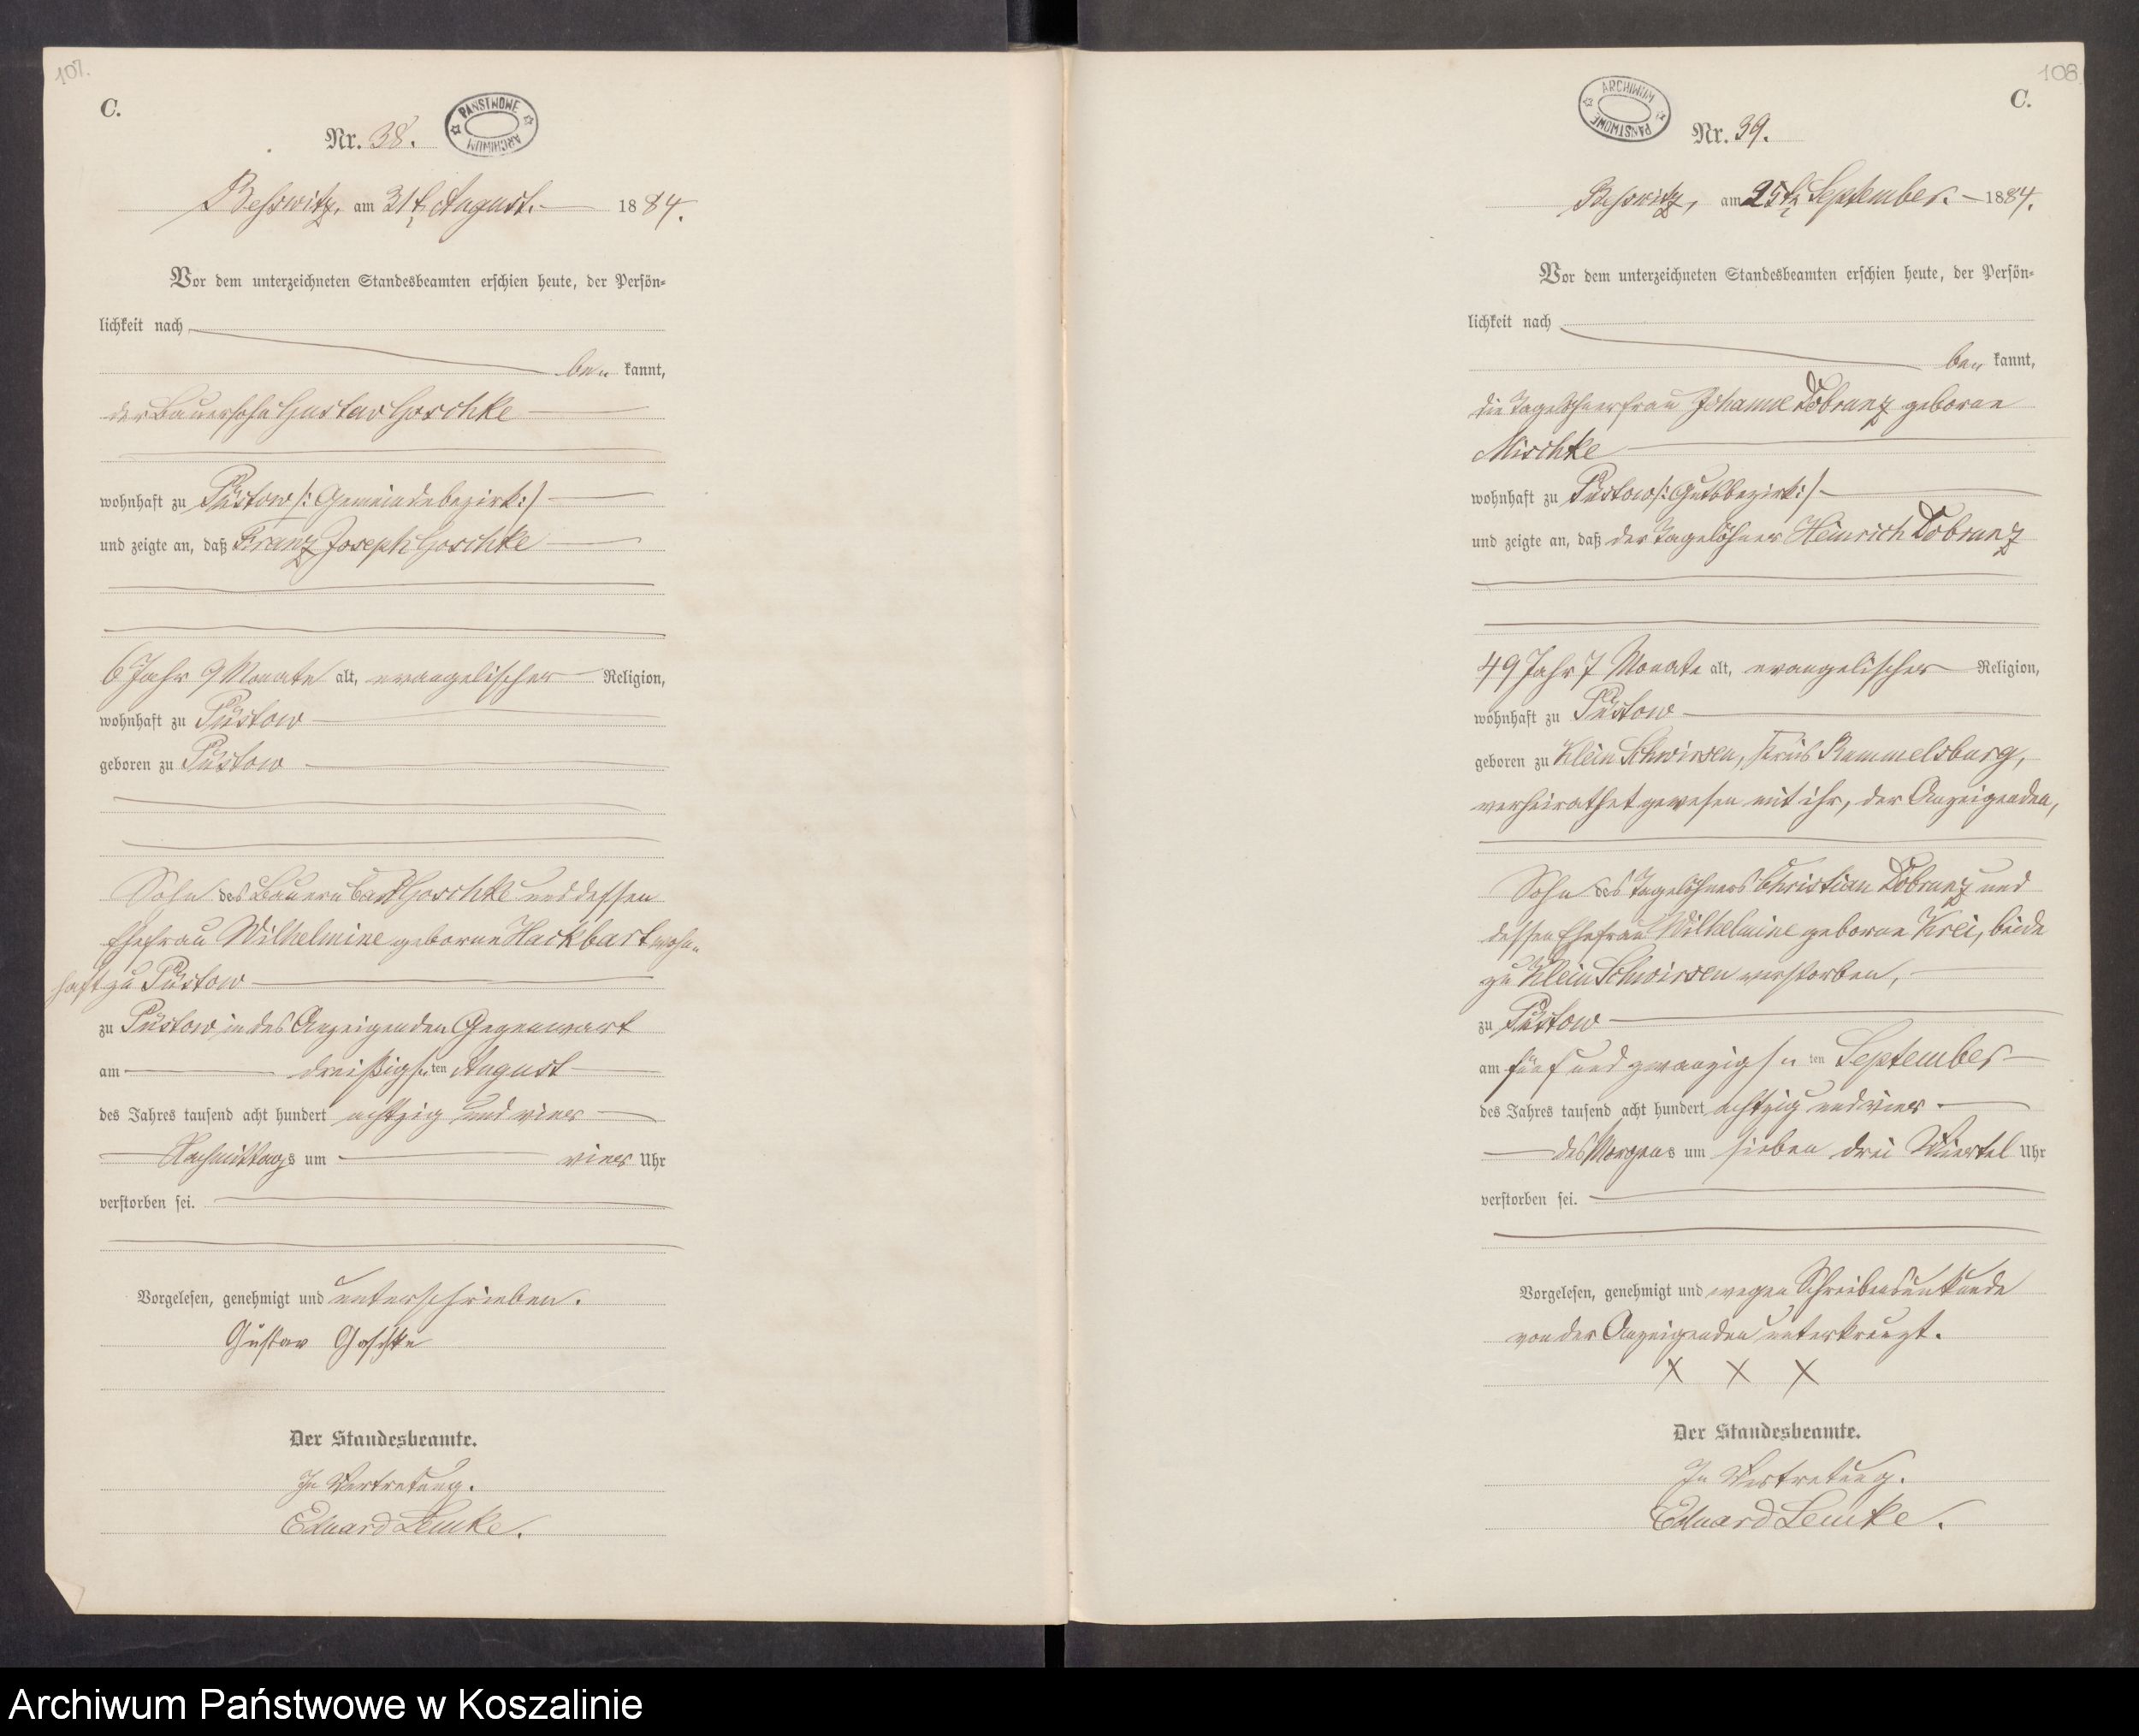 107.
C.
PAŃSTWOWE ARCHIWUM
Nr. 38.
Beßwitz, am 31t August. 1884.
Vor dem unterzeichneten Standesbeamten erschien heute, der Persön-
lichkeit nach
be- kannt,
der Bauersohn Gustav Goschke
wohnhaft zu Püstow /: Gemeindebezirk :/
und zeigte an, daß Franz Joseph Goschke
6 Jahr 9 Monate alt, evangelischer Religion,
wohnhaft zu Püstow
geboren zu Püstow
Sohn des Bauern Carl Goschke und dessen
Ehefrau Wilhelmine geborne Hackbart wohn-
haft zu Püstow
zu Püstow in des Anzeigenden Gegenwart
am dreißigsten August
des Jahres tausend acht hundert achtzig und vier
Nachmittags um vier Uhr
verstorben sei.
Vorgelesen, genehmigt und unterschrieben.
Gustav Goschke
Der Standesbeamte.
In Vertretung.
Eduard Lemke.
108
C.
ARCHIWUM PAŃSTWOWE
Nr. 39.
Beßwitz, am 25t September. 1884.
Vor dem unterzeichneten Standesbeamten erschien heute, der Persön-
lichkeit nach
be- kannt,
die Tagelöhnerfrau Johanne Dobranz geborne
Mischke
wohnhaft zu Püstow /: Gutsbezirk :/
und zeigte an, daß der Tagelöhner Heinrich Dobranz
49 Jahr 7 Monate alt, evangelischer Religion,
wohnhaft zu Püstow
geboren zu Klein Schwirsen, Kreis Rummelsburg,
verheirathet gewesen mit ihr, der Anzeigenden,
Sohn des Tagelöhners Christian Dobranz und
dessen Ehefrau Wilhelmine geborne Krei, beide
zu Klein Schwirsen verstorben,
zu Püstow
am fünf und zwanzigsten September
des Jahres tausend acht hundert achtzig und vier
des Morgens um sieben drei Viertel Uhr
verstorben sei.
Vorgelesen, genehmigt und wegen Schreibensunkunde
von der Anzeigenden unterkreuzt.
X X X
Der Standesbeamte.
In Vertretung.
Eduard Lemke.
Archiwum Państwowe w Koszalinie